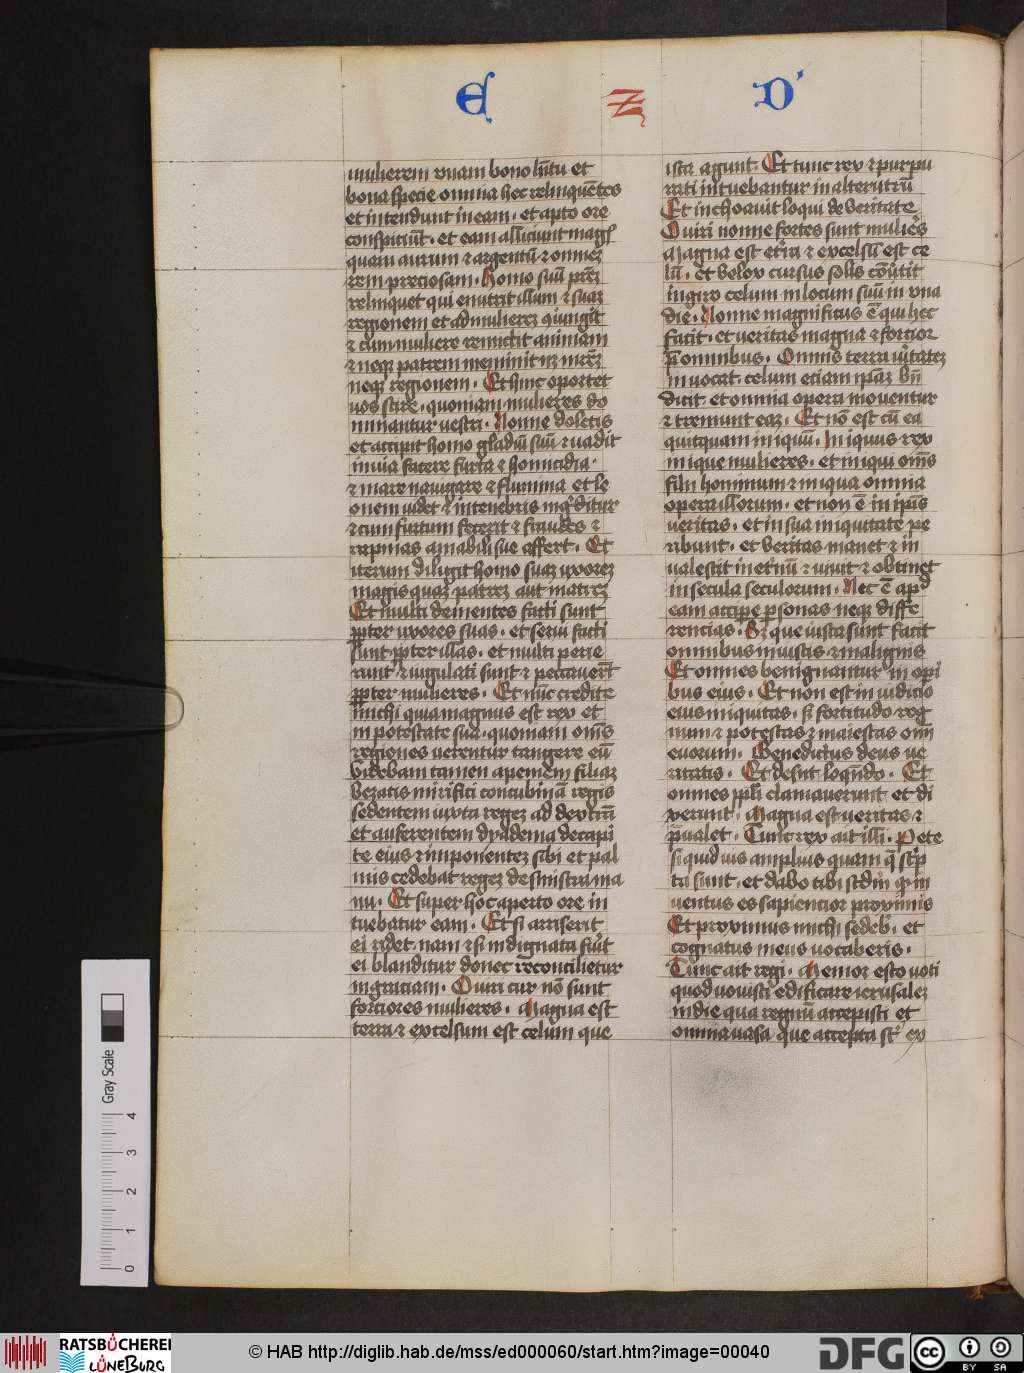 E Z D'
mulierem vnam bono hītu et
bona specie omnia hec relinquētes
et intendunt in eam . et apto ore
conspiciūt . et eam alliciunt magꝭ
quam aurum ⁊ argentū ⁊ omneꝫ
rem preciosam . Homo suū prēꝫ
relinquet qui enutrit illum ⁊ suaꝫ
regionem et ad mulierez 9iungit
⁊ cum muliere remictit animam
⁊ neqꝫ patrem meminit nꝫ mrēꝫ
neqꝫ regionem . Et hinc oportet
vos scire . quoniam mulieres do
minantur vestri . Nonne doletis
et accipit homo gladiū suū ⁊ vadit
in via facere furta ⁊ homicidia .
⁊ mare nauigare ⁊ flumina et le
onem videt ⁊ in tenebris ingditur
⁊ cum furtum fecerit ⁊ fraudes ⁊
rapinas amabili sue affert . Et
iterum diligit homo suaꝫ vxoreꝫ
magis quaꝫ patreꝫ aut matreꝫ
Et multi dementes facti sunt
ꝓpter vxores suas . et serui facti
sunt ꝓpter illas . et multi perie
runt ⁊ iugulati sunt ⁊ peccauerūt
ꝓpter mulieres . Et nūc credite
michi quia magnus est rex et
in potestate sua . quoniam oms̄
regiones verentur tangere eū
Videbam tamen apemen filiaꝫ
bezatis mirifici concubinā regis
sedentem iuxta regeꝫ ad dextrā
et auferentem dyadema de capi
te eius ⁊ imponenteꝫ sibi et pal
mis cedebat regeꝫ de sinistra ma
nu . Et super hoc aperto ore in
tuebatur eam . Et si arriserit
ei ridet . nam ⁊ si indignata fuit
ei blanditur donec reconcilietur
in graciam . O viri cur nō sunt
forciores mulieres . Magna est
terra ⁊ excelsum est celum que
ista agunt . Et tunc rex ⁊ purpu
rati intuebantur in alterutrū
Et inchoauit loqui de veritate
O viri nonne fortes sunt muliers̄
Magna est et tra ⁊ excelsū est ce
lū . et velox cursus solis cōutit
in giro celum in locum suū in vna
die . Nonne magnificus ē qui hec
facit . et veritas magna ⁊ forcior
p̄ omnibus . Omnis terra v̄itateꝫ
inuocat . celum eciam ipaꝫ bn̄
dicit . et omnia opera mouentur
⁊ tremunt eaꝫ . Et nō est cū ea
quitquam iniquū . Iniquus rex
inique mulieres . et iniqui oms̄
filii hominum ⁊ iniqua omnia
opera illorum . et non ē in ipis̄
veritas . et in sua iniquitate pe
ribunt . et veritas manet ⁊ in
ualescit in et̄nū ⁊ viuit ⁊ obtinet
in secula seculorum . Nec ē apd
eam accipe ꝑsonas neqꝫ diffe
rencias . Sꝫ que iusta sunt facit
omnibus iniustis ⁊ malignis
Et omnes benignantur in opi
bus eius . Et non est in iudicio
eius iniquitas . sꝫ fortitudo reg
num ⁊ potestas ⁊ maiestas om̄
euorum . Benedictus deus ve
ritatis . Et desnt loqn̄do . Et
omnes ppl̄i clamauerunt et di
xerunt . Magna est veritas ⁊
p̄ualet . Tunc rex ait illi . Pete
si quid vis amplius quam q̄ scp̄
ta sunt . et dabo tibi scdm̄ qꝫ in
uentus es sapiencior proximis
Et proximus michi sedeb' . et
cognatus meus vocaberis .
Tunc ait regi . Memor esto voti
quod vouisti edificare ierusaleꝫ
in die qua regnū accepisti et
omnia vasa que accepta st' ex
Gray Scale
0 1 2 3 4
RATSBÜCHEREI
LÜNEBURG
© HAB http://diglib.hab.de/mss/ed000060/start.htm?image=00040
DFG
cc BY SA